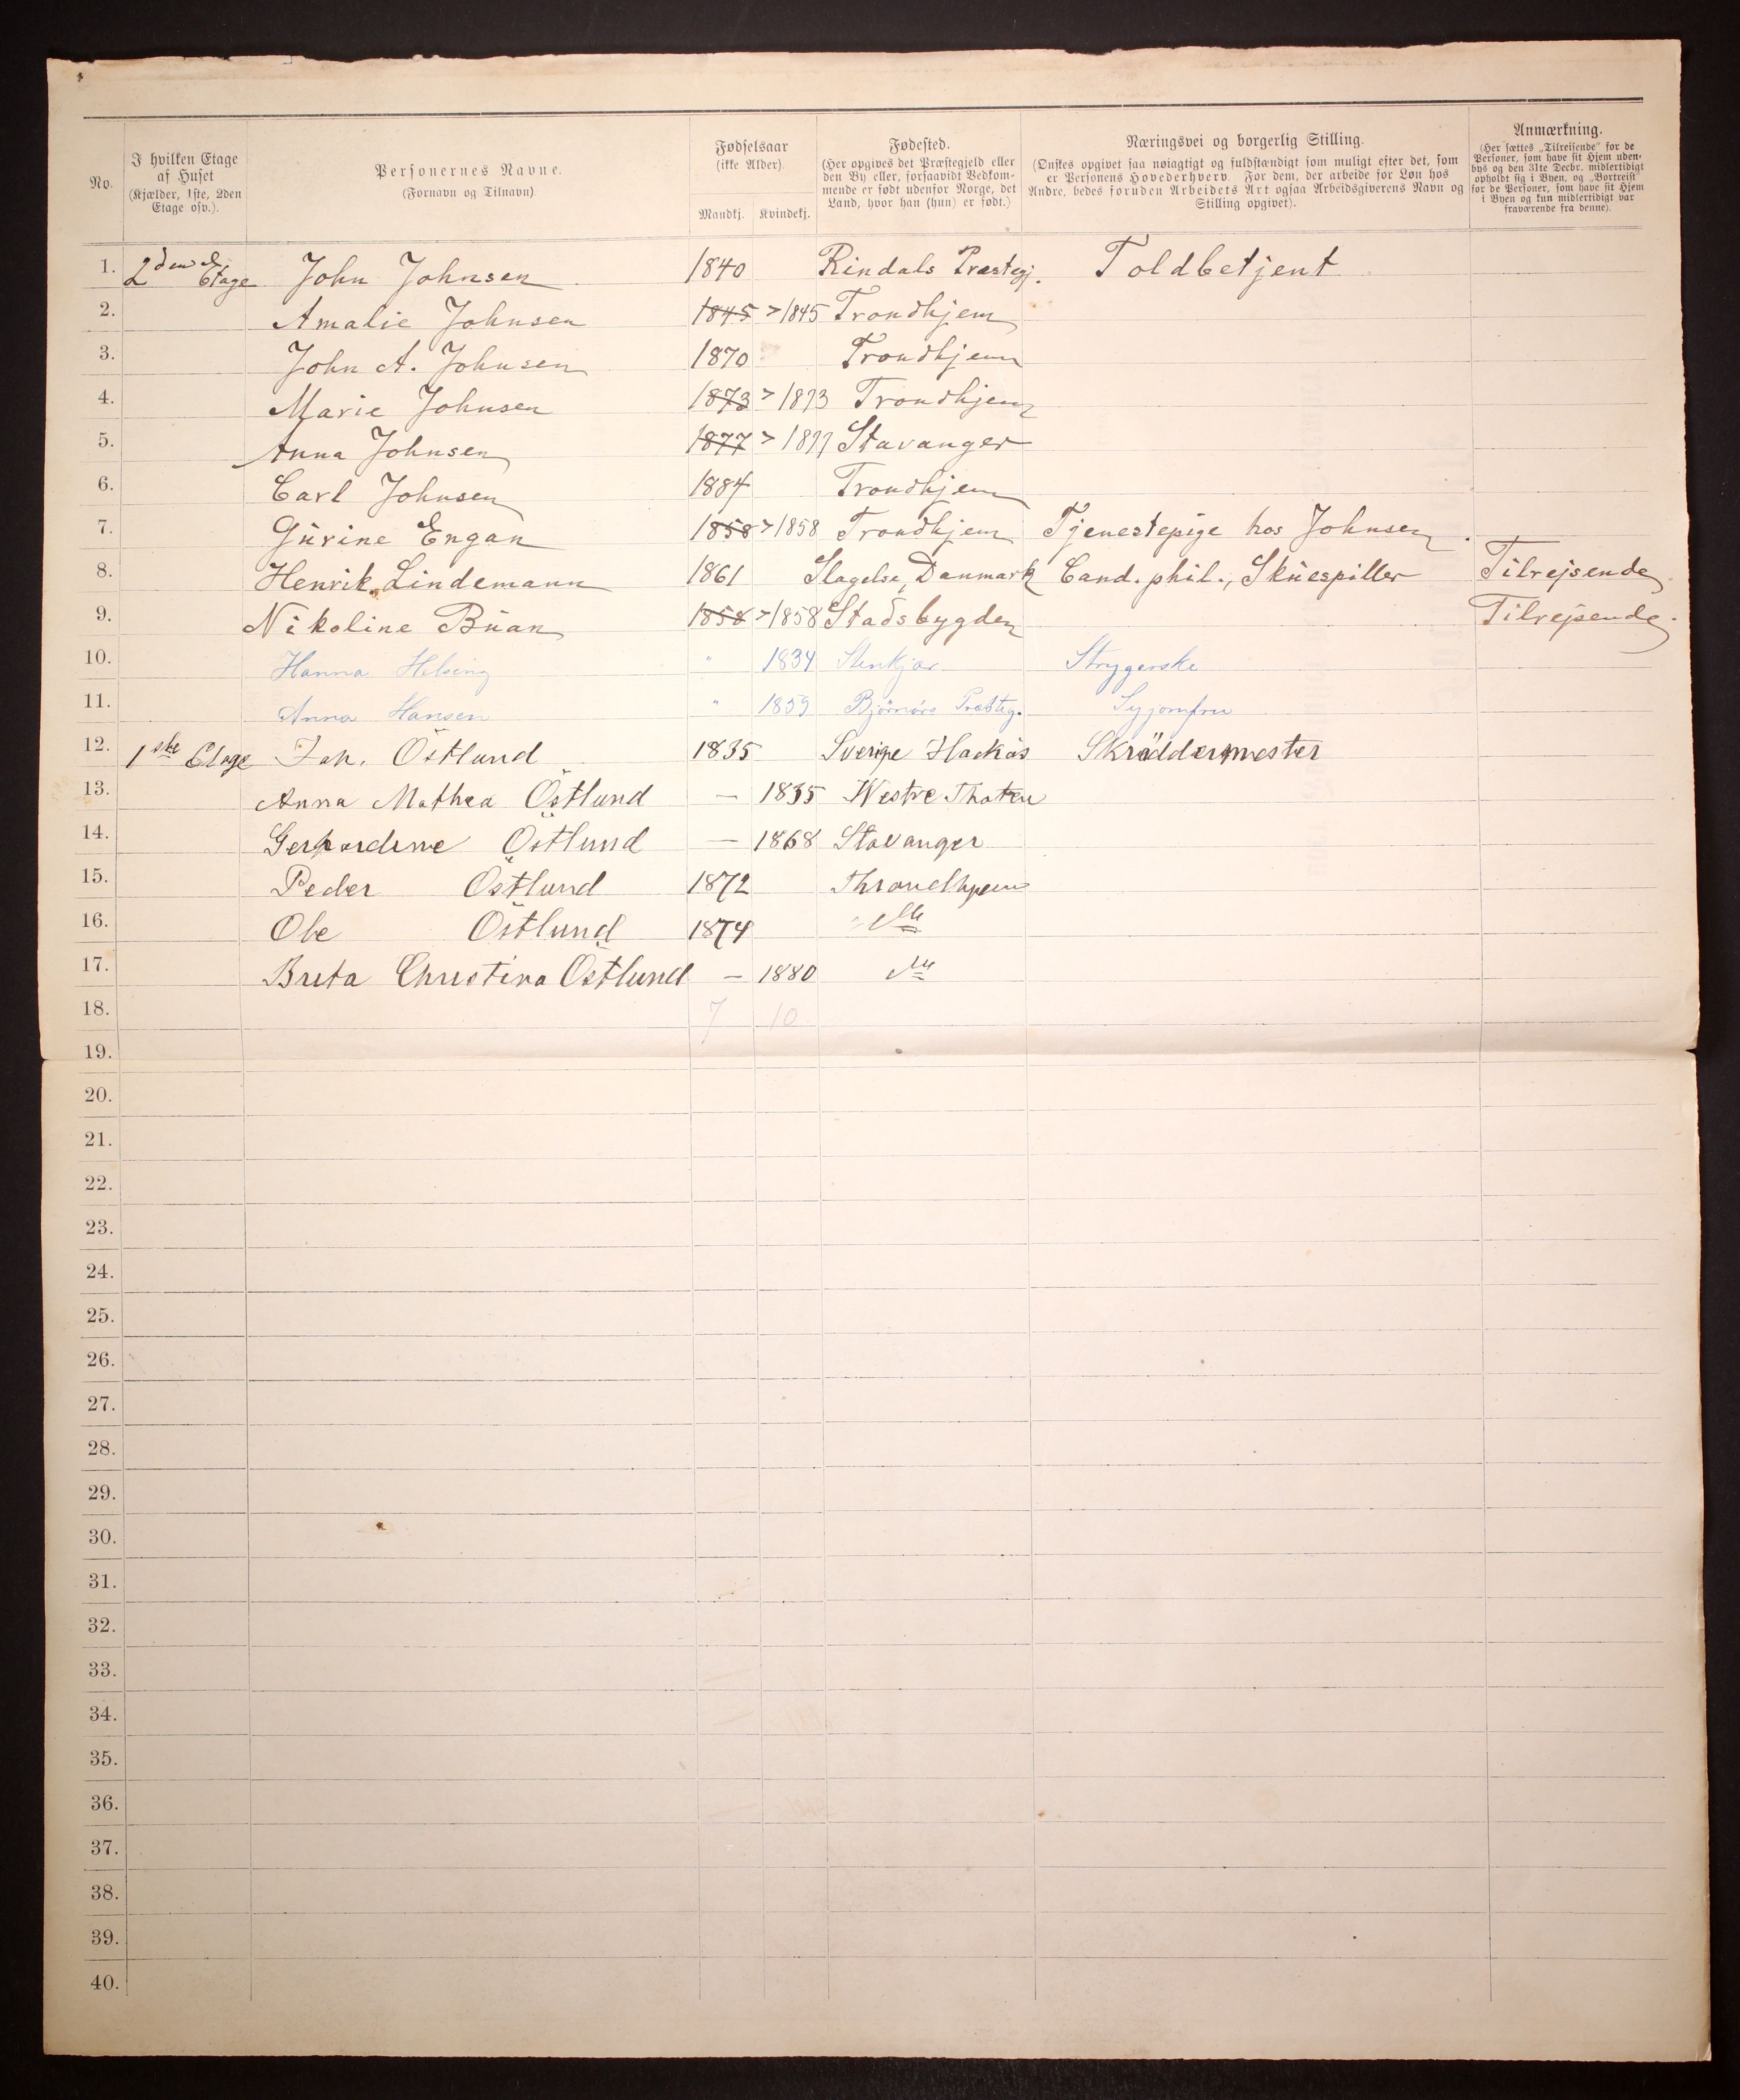 No.
I hvilken Etage
af Huset
(Kjælder, 1ste, 2den
Etage osv.).
Personernes Navne.
(Fornavn og Tilnavn).
Fødselsaar
(ikke Alder).
Mandkj. Kvindekj.
Fødested.
(Her opgives det Præstegjeld eller
den By eller, forsaavidt Vedkom-
mende er født udenfor Norge, det
Land, hvor han (hun) er født.)
Næringsvei og borgerlig Stilling.
(Ønskes opgivet saa nøiagtigt og fuldstændigt som muligt efter det, som
er Personens Hovederhverv. For dem, der arbeide for Løn hos
Andre, bedes foruden Arbeidets Art ogsaa Arbeidsgiverens Navn og
Stilling opgivet).
Anmærkning.
(Her sættes „Tilreisende" for de
Personer, som have sit Hjem uden-
bys og den 31te Decbr. midlertidigt
opholdt sig i Byen, og „Bortreist"
for de Personer, som have sit Hjem
i Byen og kun midlertidigt var
fraværende fra denne).
1. 2den Etage John Johnsen 1840 Rindals Præstegj. Toldbetjent
2. Amalie Johnsen 1845 > 1845 Trondhjem
3. John A. Johnsen 1870 Trondhjem
4. Marie Johnsen 1873 > 1873 Trondhjem
5. Anna Johnsen 1877 > 1877 Stavanger
6. Carl Johnsen 1884 Trondhjem
7. Gurine Engan 1858 > 1858 Trondhjem Tjenestepige hos Johnsen.
8. Henrik Lindemann 1861 Slagelse, Danmark Cand. phil., Skuespiller Tilrejsende
9. Nikoline Buan 1858 > 1858 Stadsbygden Tilrejsende.
10. Hanna Helsing " 1834 Stenkjær Strygerske
11. Anna Hansen " 1859 Bjørnørs Præsteg. Syjomfru
12. 1ste Etage Joh. Östlund 1835 Sverige Hackås Skräddermester
13. Anna Mathea Östlund — 1835 Westre Thoten
14. Gerhardine Östlund — 1868 Stavanger
15. Peder Östlund 1872 Throndhjem
16. Ole Östlund 1874 do
17. Brita Christina Östlund — 1880 do
18. 7 10
19.
20.
21.
22.
23.
24.
25.
26.
27.
28.
29.
30.
31.
32.
33.
34.
35.
36.
37.
38.
39.
40.